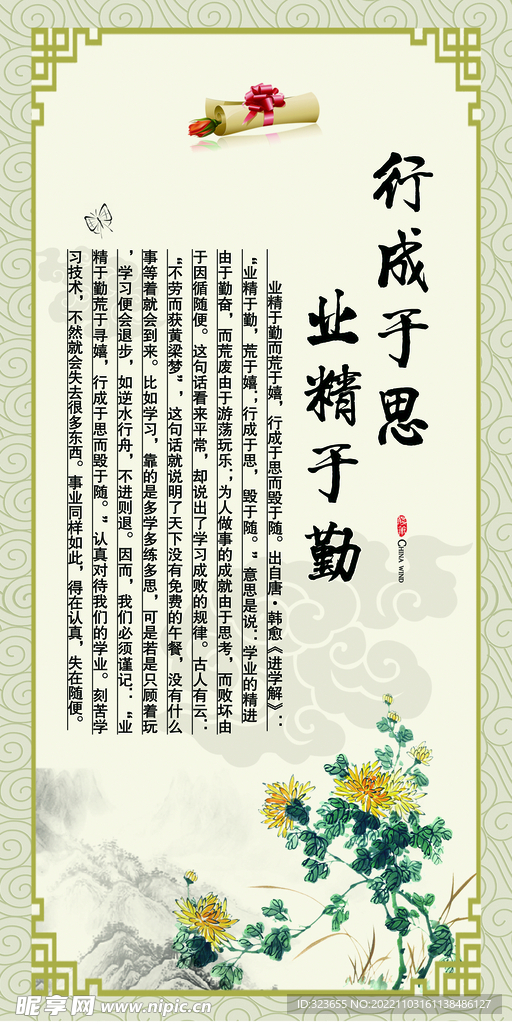 行成于思
业精于勤
CHINA WIND
业精于勤而荒于嬉，行成于思而毁于随。出自唐·韩愈《进学解》：
“业精于勤，荒于嬉；行成于思，毁于随。”意思是说：学业的精进
由于勤奋，而荒废由于游荡玩乐；为人做事的成就由于思考，而败坏由
于因循随便。这句话看来平常，却说出了学习成败的规律。古人有云：
“不劳而获黄梁梦”，这句话就说明了天下没有免费的午餐，没有什么
事等着就会到来。比如学习，靠的是多学多练多思，可是若是只顾着玩
，学习便会退步，如逆水行舟，不进则退。因而，我们必须谨记：“业
精于勤荒于寻嬉，行成于思而毁于随。”认真对待我们的学业。刻苦学
习技术，不然就会失去很多东西。事业同样如此，得在认真，失在随便。
昵享网 www.nipic.cn
ID:323655 NO:20221103161138486127